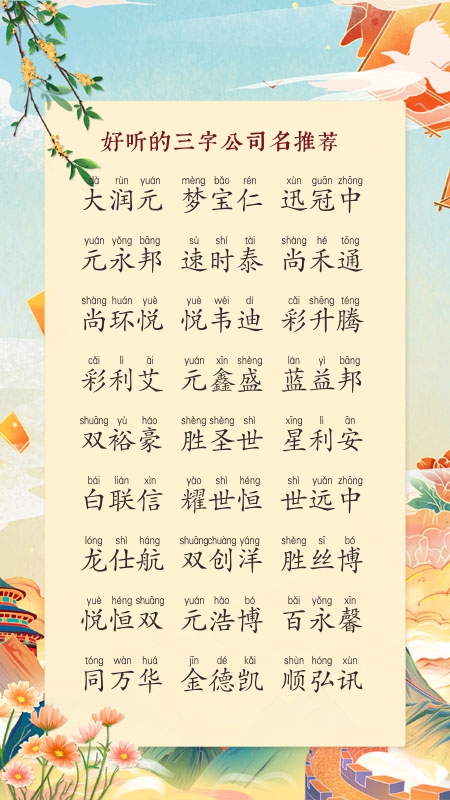 好听的三字公司名推荐
dà rùn yuán mèng bǎo rén xùn guān zhōng
大润元 梦宝仁 迅冠中
yuán yǒng bāng sù shí tài shàng hé tōng
元永邦 速时泰 尚禾通
shàng huán yuè yuè wéi dí cǎi shēng téng
尚环悦 悦韦迪 彩升腾
cǎi lì ài yuán xīn shèng lán yì bāng
彩利艾 元鑫盛 蓝益邦
shuāng yù háo shèng shèng shì xīng lì ān
双裕豪 胜圣世 星利安
bái lián xìn yào shì héng shì yuǎn zhōng
白联信 耀世恒 世远中
lóng shì háng shuāng chuàng yáng shèng sī bó
龙仕航 双创洋 胜丝博
yuè héng shuāng yuán hào bó bǎi yǒng xīn
悦恒双 元浩博 百永馨
tóng wàn huá jīn dé kǎi shùn hóng xùn
同万华 金德凯 顺弘讯